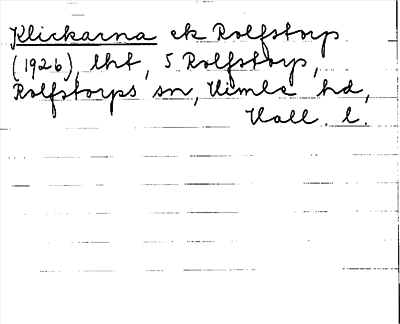 Klickarna ek Rolfstorp
(1926), lht, S Rolfstorp,
Rolfstorps sn, Himle hd,
Hall. l.